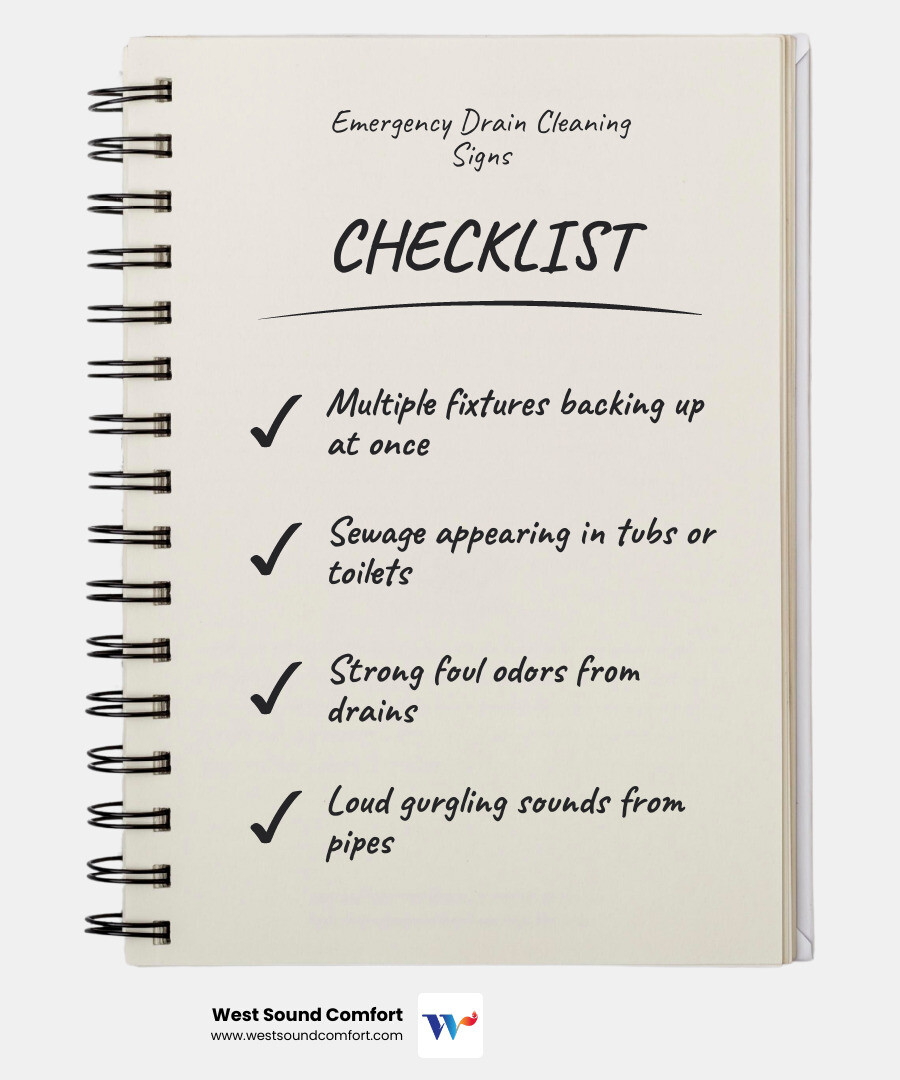 Emergency Drain Cleaning
Signs
CHECKLIST
Multiple fixtures backing up
at once
Sewage appearing in tubs or
toilets
Strong foul odors from
drains
Loud gurgling sounds from
pipes
West Sound Comfort
www.westsoundcomfort.com